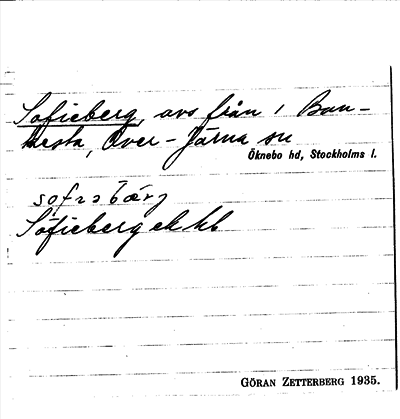 Sofieberg, avs från 1 Bon-
kesta, Över-Järna sn
Öknebo hd, Stockholms l.
Sofieberg ek kb
GÖRAN ZETTERBERG 1935.